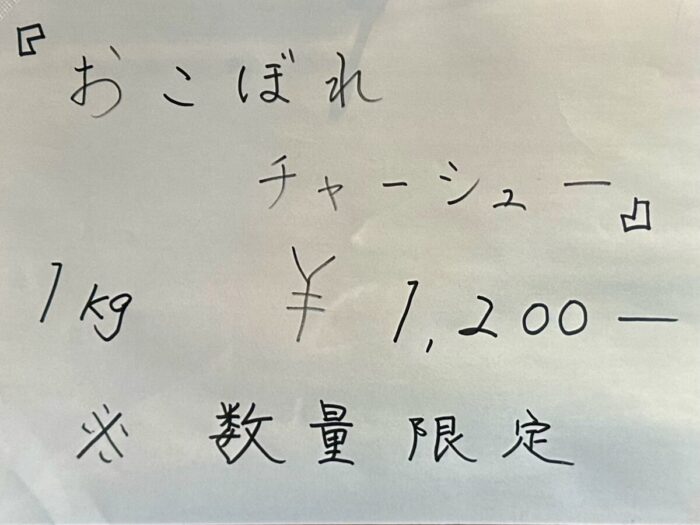 『おこぼれ
チャーシュー』
1kg ¥1,200ー
※数量限定